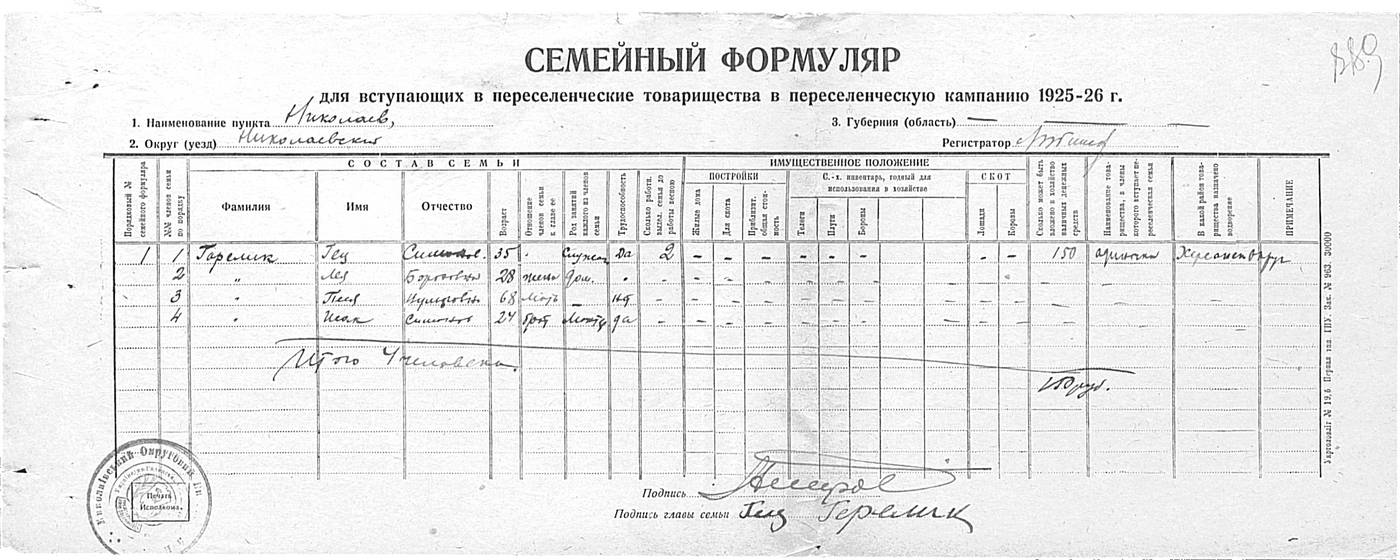 889
СЕМЕЙНЫЙ ФОРМУЛЯР
для вступающих в переселенческие товарищества в переселенческую кампанию 1925-26 г.
1. Наименование пункта Николаев, 3. Губерния (область) —
2. Округ (уезд) Николаевский Регистратор
СОСТАВ СЕМЬИ ИМУЩЕСТВЕННОЕ ПОЛОЖЕНИЕ
Порядковый № семейного формуляра
№№ членов семьи по порядку
Фамилия
Имя
Отчество
Возраст
Отношение членов семьи к главе ее
Род занятий каждого из членов семьи
Трудоспособность
Сколько работн. выдел. семья до работы весною
ПОСТРОЙКИ
Жилые дома
Для скота
Приблизит. общая стоимость
С.-х. инвентарь, годный для использования в хозяйстве
Телеги
Плуги
Бороны
СКОТ
Лошади
Коровы
Сколько может быть вложено в хозяйство наличных денежных средств
Наименование товарищества, в члены которого вступает переселенческая семья
В какой район товарищества назначено водворение
ПРИМЕЧАНИЕ
1 1 Горелик Гец 35 Да 2 – – – – – – – – 150
2 " Лея Боруховна 28 жена дом. " – – – – – – – –
3 " Песя 68 мать – – – – – – – – –
4 " Исак 24 брат да – – – – – – – –
Итого 4 человека.
150 руб.
Подпись
Подпись главы семьи Гец Горелик
Печать
Исполкома.
Миколаївський Округовий
Укрголовліт № 19,6 Первая тип. ГПУ. Зак. № 963. 30000